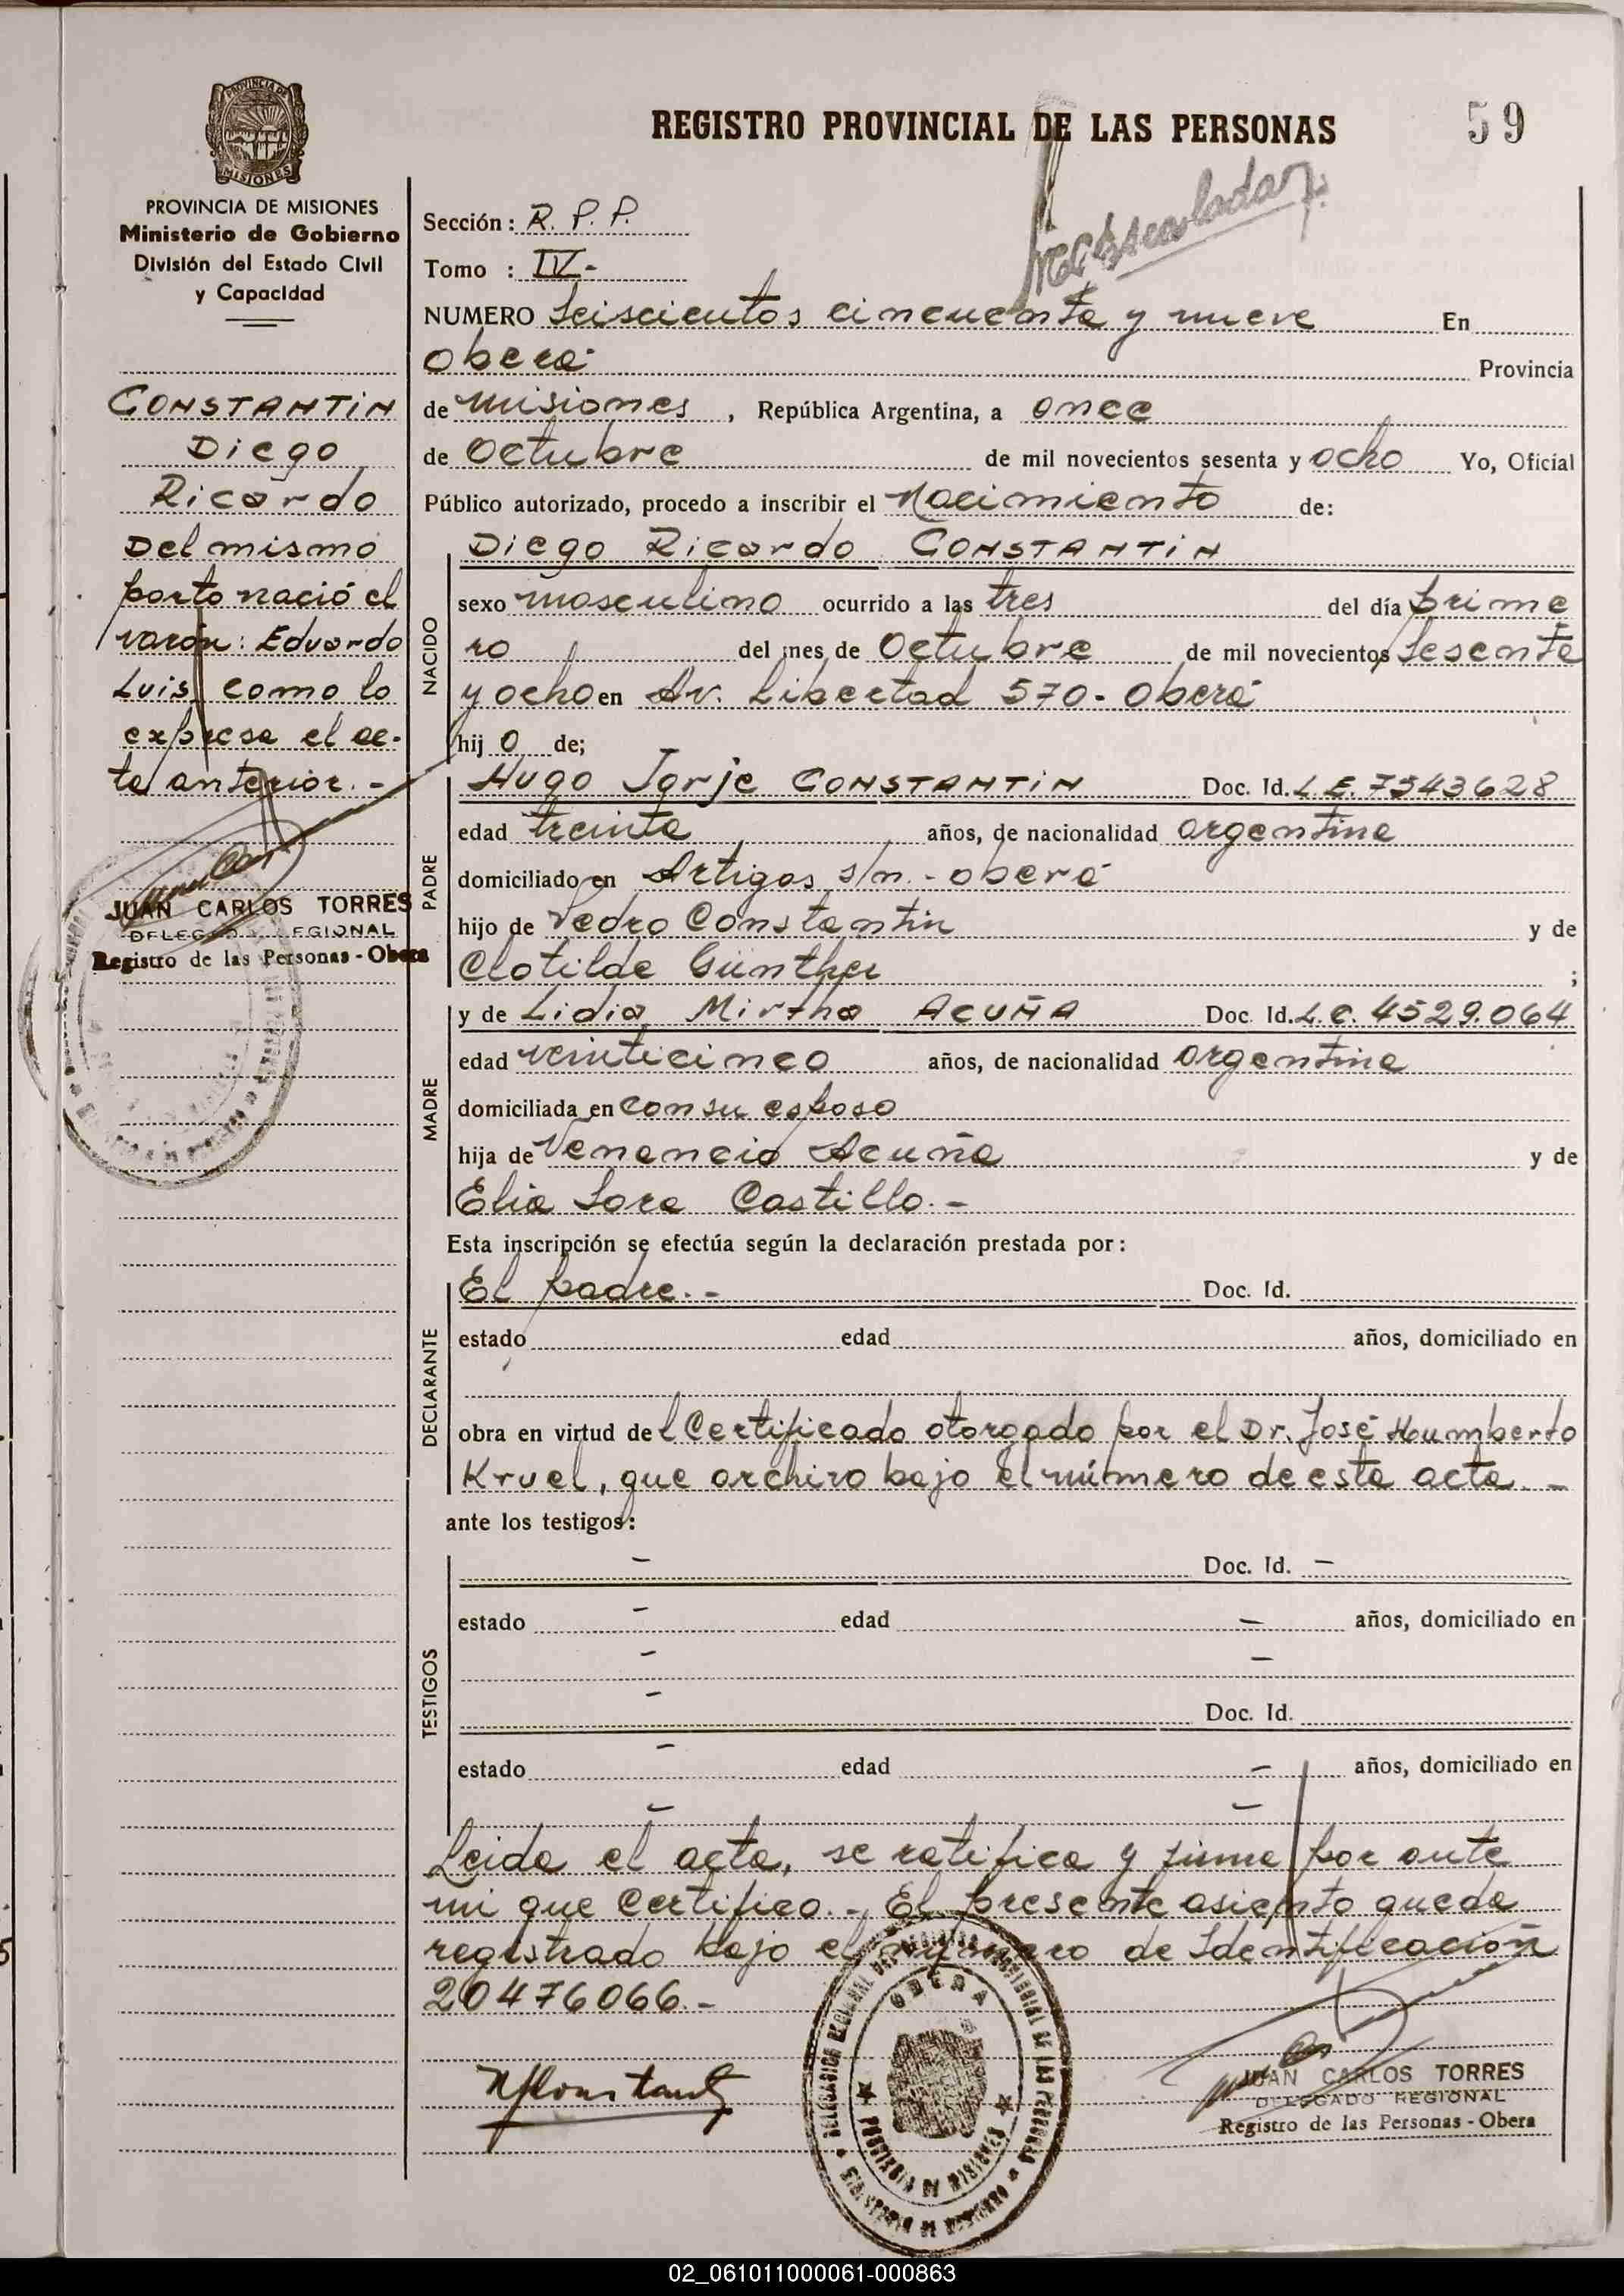 REGISTRO PROVINCIAL DE LAS PERSONAS 59
PROVINCIA DE MISIONES
PROVINCIA DE MISIONES
Ministerio de Gobierno
División del Estado Civil
y Capacidad
CONSTANTIN
Diego
Ricardo
Del mismo
parto nació el
varón: Eduardo
Luis, como lo
expresa el ac-
ta anterior.-
JUAN CARLOS TORRES
DELEGADO REGIONAL
Registro de las Personas - Obera
Sección: R. P. P.
Tomo : IV-
NUMERO Seiscientos cincuenta y nueve En
Oberá Provincia
de Misiones, República Argentina, a once
de Octubre de mil novecientos sesenta y ocho Yo, Oficial
Público autorizado, procedo a inscribir el Nacimiento de:
NACIDO
Diego Ricardo CONSTANTIN
sexo masculino ocurrido a las tres del día prime
ro del mes de Octubre de mil novecientos sesenta
y ocho en Av. Libertad 570 - Oberá
hij o de;
PADRE
Hugo Jorje CONSTANTIN Doc. Id. L.E. 7543628
edad treinta años, de nacionalidad argentina
domiciliado en Artigas s/n. - oberá
hijo de Pedro Constantin y de
Clotilde Günther ;
MADRE
y de Lidia Mirtha ACUÑA Doc. Id. L.C. 4529.064
edad veinticinco años, de nacionalidad argentina
domiciliada en con su esposo
hija de Venancio Acuña y de
Elia Sora Castillo.-
Esta inscripción se efectúa según la declaración prestada por:
DECLARANTE
El padre.- Doc. Id.
estado edad años, domiciliado en
obra en virtud del Certificado otorgado por el Dr. José Humberto
Kruel, que archivo bajo el número de esta acta.-
ante los testigos:
TESTIGOS
- Doc. Id. -
estado - edad - años, domiciliado en
- -
- Doc. Id.
estado - edad - años, domiciliado en
- -
Leida el acta, se ratifica y firma por ante
mi que Certifico.- El presente asiento queda
registrado bajo el número de Identificación
20476066.-
OBERA
JUAN CARLOS TORRES
DELEGADO REGIONAL
Registro de las Personas - Obera
02_061011000061-000863